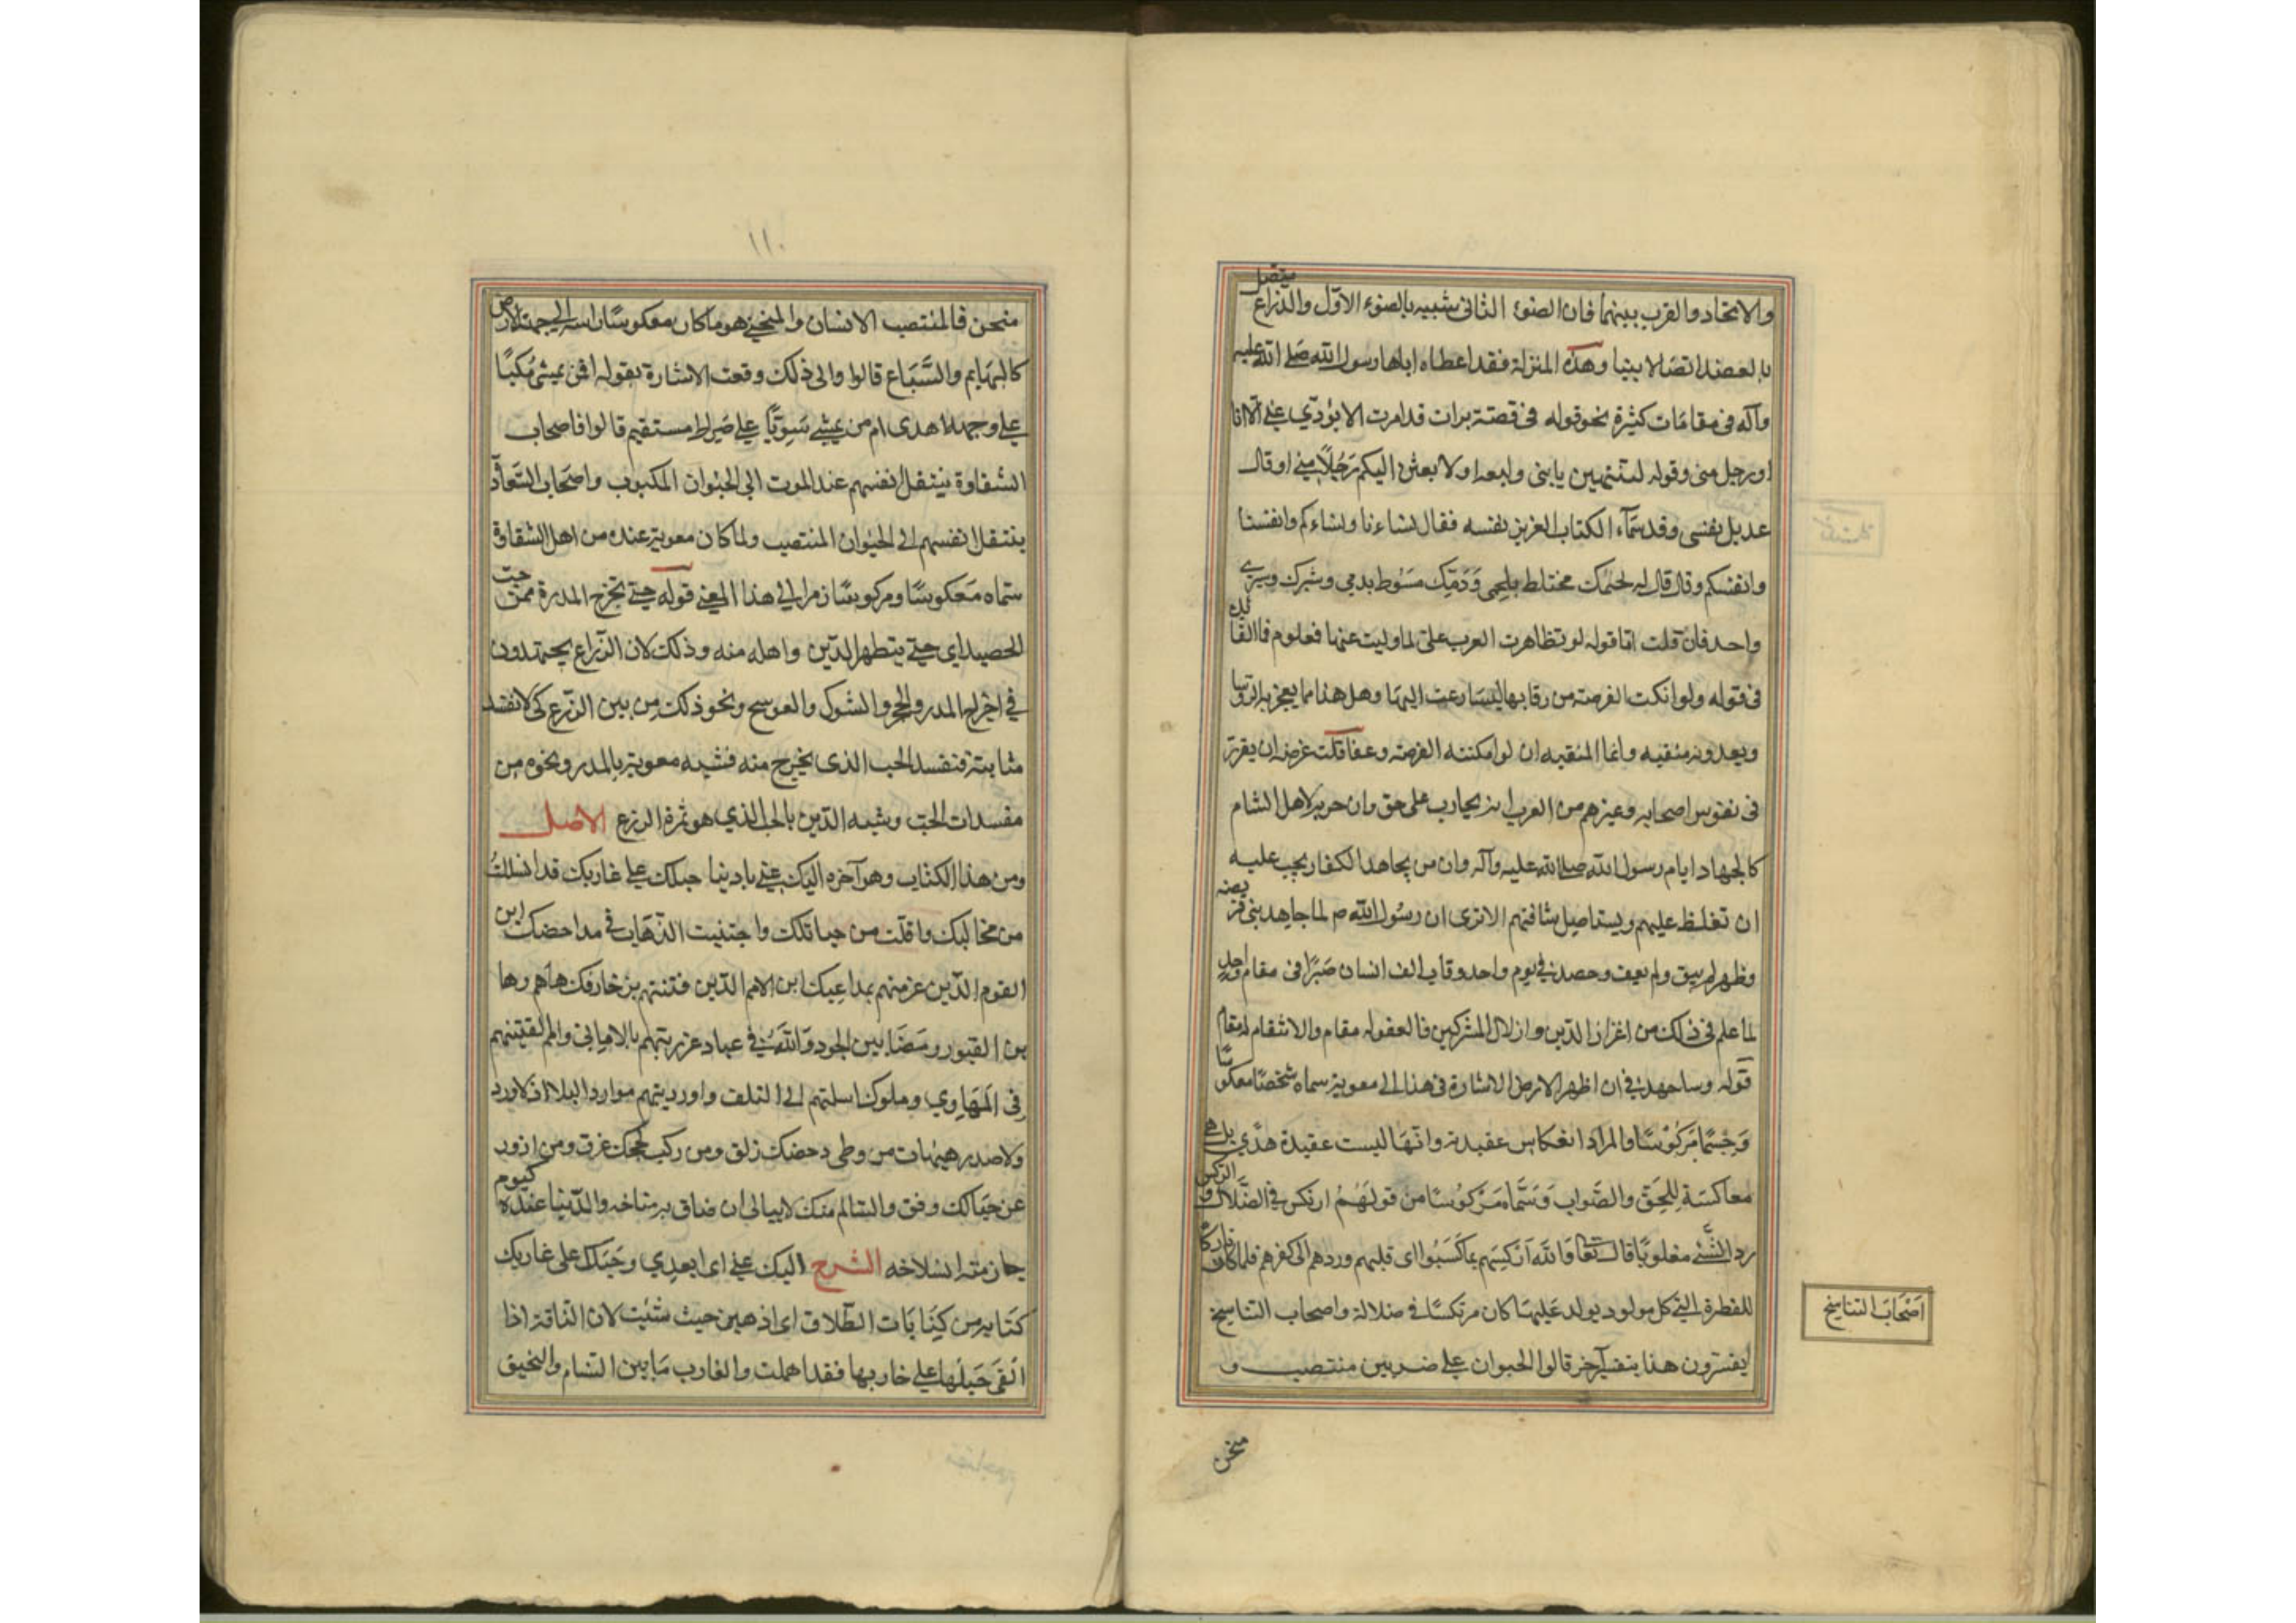 والاتحاد والقرب بينهما فان الصنو الثانى شبيه بالصنو الاول والذراع متصل
بالعضد اتصالا بينا وهذه المنزلة فقد اعطاه اياها رسول الله صلى الله عليه
وآله فى مقامات كثيرة نحو قوله فى قصة براءت قد امرت الا يؤدي عنى الا انا
او رجل منى وقوله لتنتهين يا بنى وليعة او لابعثن اليكم رَجُلًا منى او قال
عديل نفسى وقد سمّاه الكتاب العزيز نفسه فقال نساءنا ونساءكم وانفسنا
وانفسكم وقال قال له لحمك مختلط بلحمى وَدَمك مَسُوط بدمى وشبرك وشبرى
واحد فان قلت اما قوله لو تظاهرت العرب على لما وليت عنها فمعلوم فما الفائدة
فى قوله ولو امكنت الفرصة من رقابها لسارعت اليها وهل هذا مما يفخر به الرؤسا
ويعدونه منقبه وانما المنقبه ان لو امكنته الفرصة وعفا قلت غرضه ان يقرر
فى نفوس اصحابه وغيرهم من العرب انه يحارب على حق وان حربه لاهل الشام
كالجهاد ايام رسول الله صلى الله عليه وآله وان من يجاهد الكفار يجب عليه
ان تغلظ عليهم ويستاصل شافتهم الا ترى ان رسول الله ص لما جاهد بنى قريضه
وظهر لم يبق ولم يعف وحصد فى يوم واحد رقاب الف انسان صَبْرًا فى مقام واحد
لما علم فى ذلك من اعزاز الدين واذلال المشركين فالعفو له مقام والانتقام له مقام
قوله وساجهد فى ان اظهر الارض الاشارة فى هذا الى معوية سماه شخصًا معكوسًا
وَجِسْمًا مَركُوسًا والمراد انعكاس عقيدته وانها ليست عقيدة هدى بل هى
معاكسَة لِلحَق والصَّواب وَسَمَّاه مَركُوسًا من قولهُمْ ارتكس فى الضَّلال والركس
رد الشَّىء مقلوبًا قال تعالى وَالله اَركَسَهم بِمَا كَسَبُوا اى قلبهم وردهم الى كفرهم فلما كان تاركًا
للفطرة التى كل مولود يولد عَليهَا كان مرتكسًا فى ضلالة واصحاب التناسخ
يفسّرون هذا بتفسير آخر قالوا الحيوان على ضربين منتصب و
منحن
اَصْحَابُ التناسخ
١١٠
منحن فالمنتصب الانسان والمنحنى هو ما كان معكوسًا راسه الى جهة الارض
كالبهَايم والسَّبَاع قالوا والى ذلك وقعت الاشارة بقوله افمن يمشى مُكِبًا
على وجهه اهدى ام من يمشى سَويًّا على صَراط مستقيم قالوا فاصحاب
الشقاوة ينتقل انفسهم عند الموت الى الحيوان المكبوب واصحاب السَّعادة
ينتقل انفسهم الى الحيوان المنتصب ولما كان معوية عنده من اهل الشقاوة
سمّاه مَعكوسًا ومركوسًا زمرا الى هذا المعنى قوله حتى تخرج المدرة من حبّ
الحصيد اى حتى يتطهر الدّين واهله منه وذلك لان الزراع يجتهدون
فى اخراج المدر والحجر والشوك والعوسج ونحو ذلك من بين الزرع كى لا تفسد
منابته فتفسد الحب الذى يخرج منه فشبه معوية بالمدر ونحوه من
مفسدات الحبّ وشبه الدّين بالحب الذى هو ثمرة الزرع الاصل
ومن هذا الكتاب وهو آخره اليك عنى يا دنيا حبلك على غاربك قد انسللتُ
من مخالبك وافلت من حبائلك واجتنبت الذّهاب فى مداحضك اين
القوم الذّين غررتهم بمداعبك اين الامم الذّين فتنتهم بزخارفك ها هم رها
ين القبور ومضَامين اللحود وَالله فى عباد غررتهم بالامانى وامم القيتهم
فى المَهَاوي وملوك اسلمتهم الى التلف واوردتهم موارد البلاء اذ لا ورد
ولا صدر هيهات من وطى دحضك زلق ومن ركب لججك غرق ومن ازور
عن حبَالك وفق والسالم منك لا يبالى ان ضاق به مناخه والدّنيا عنده كيوم
حان منه انسلاخه الشرح اليك عنى اى ابعدي وحَبلك على غاربك
كنَايه من كِنَايَات الطّلاق اى اذهبى حيث شئت لان الناقة اذا
اُلقىَ حَبلُها على غاربها فقد اهملت والغارب مَا بين السّنام والعنق